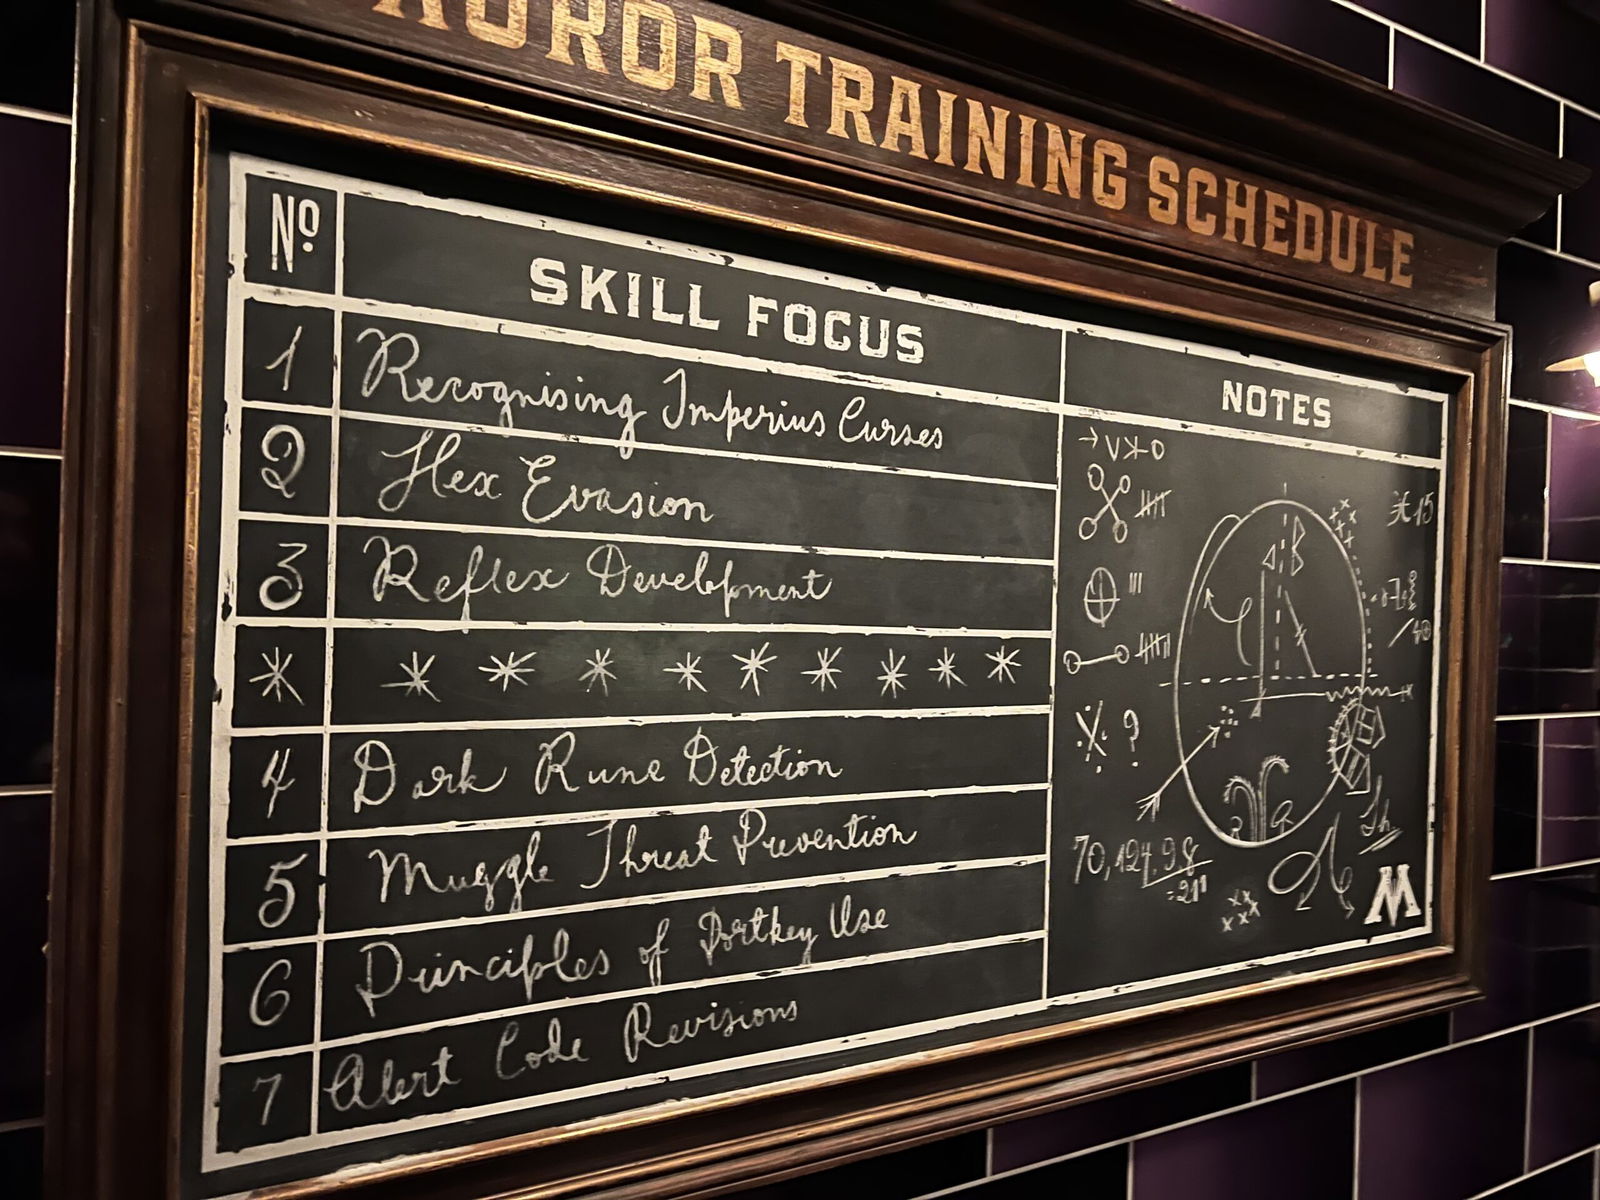 AUROR TRAINING SCHEDULE
Nº SKILL FOCUS NOTES
1 Recognising Imperius Curses
2 Hex Evasion
3 Reflex Development
4 Dark Rune Detection
5 Muggle Threat Prevention
6 Principles of Portkey Use
7 Alert Code Revisions
?
15
70,124.98
M